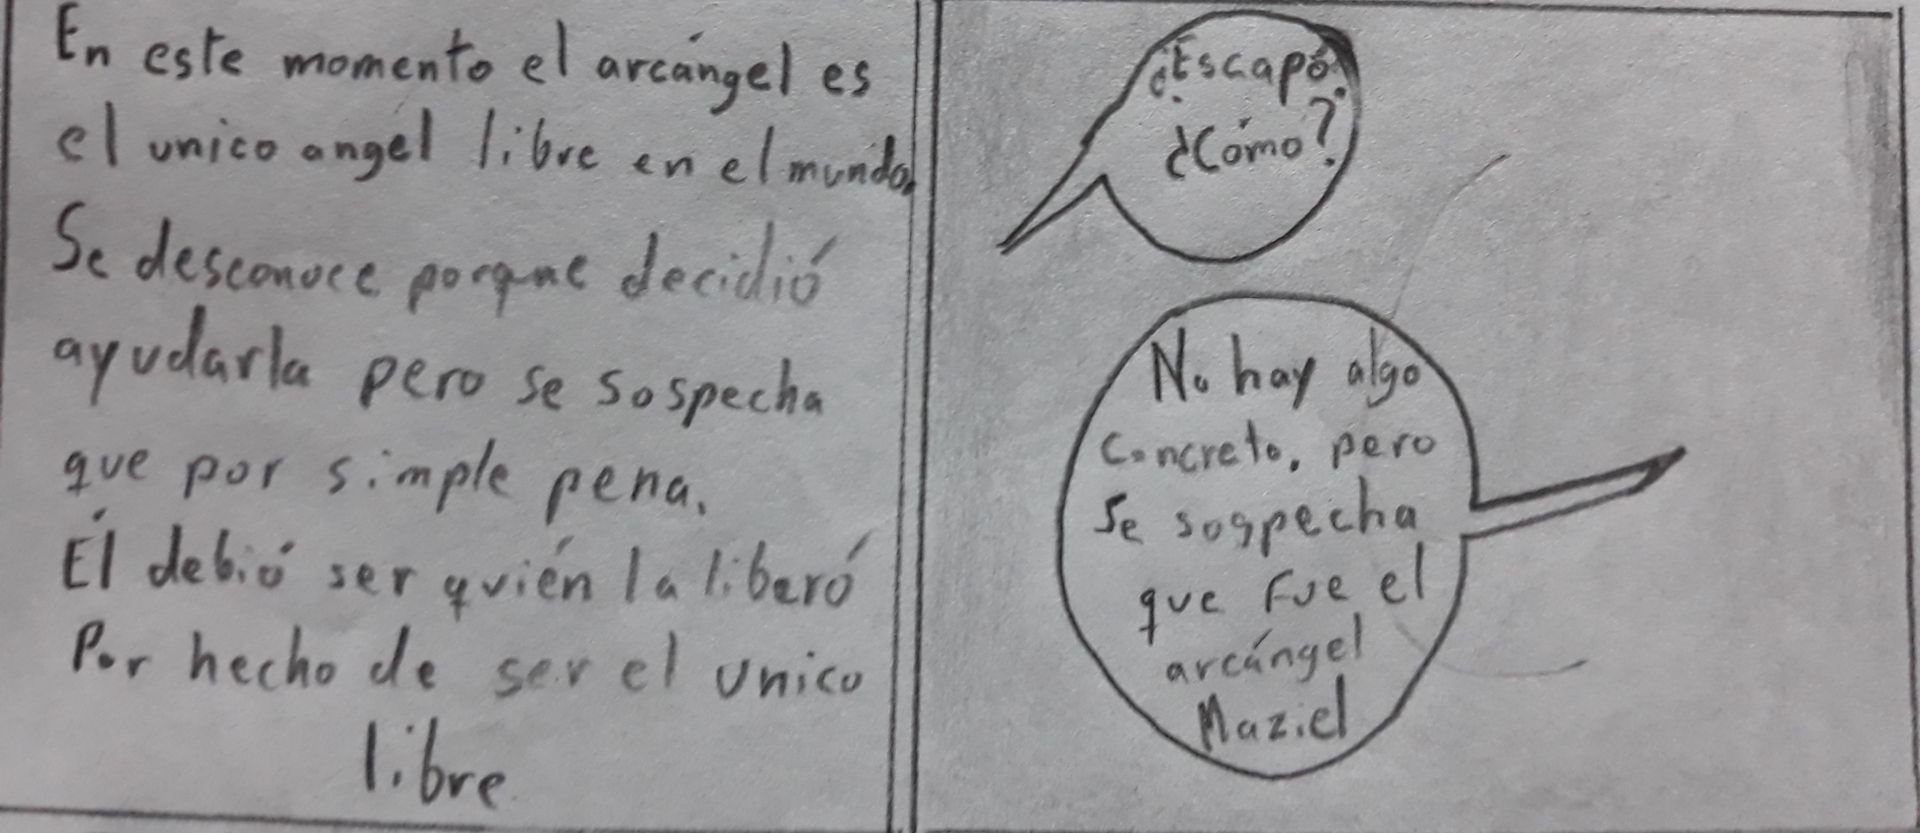 En este momento el arcángel es
el unico angel libre en el mundo.
Se desconoce porque decidió
ayudarla pero se sospecha
que por simple pena.
Él debió ser quién la liberó
Por hecho de ser el unico
libre
¿Escapó?
¿Cómo?
No hay algo
concreto, pero
se sospecha
que fue el
arcángel
Maziel